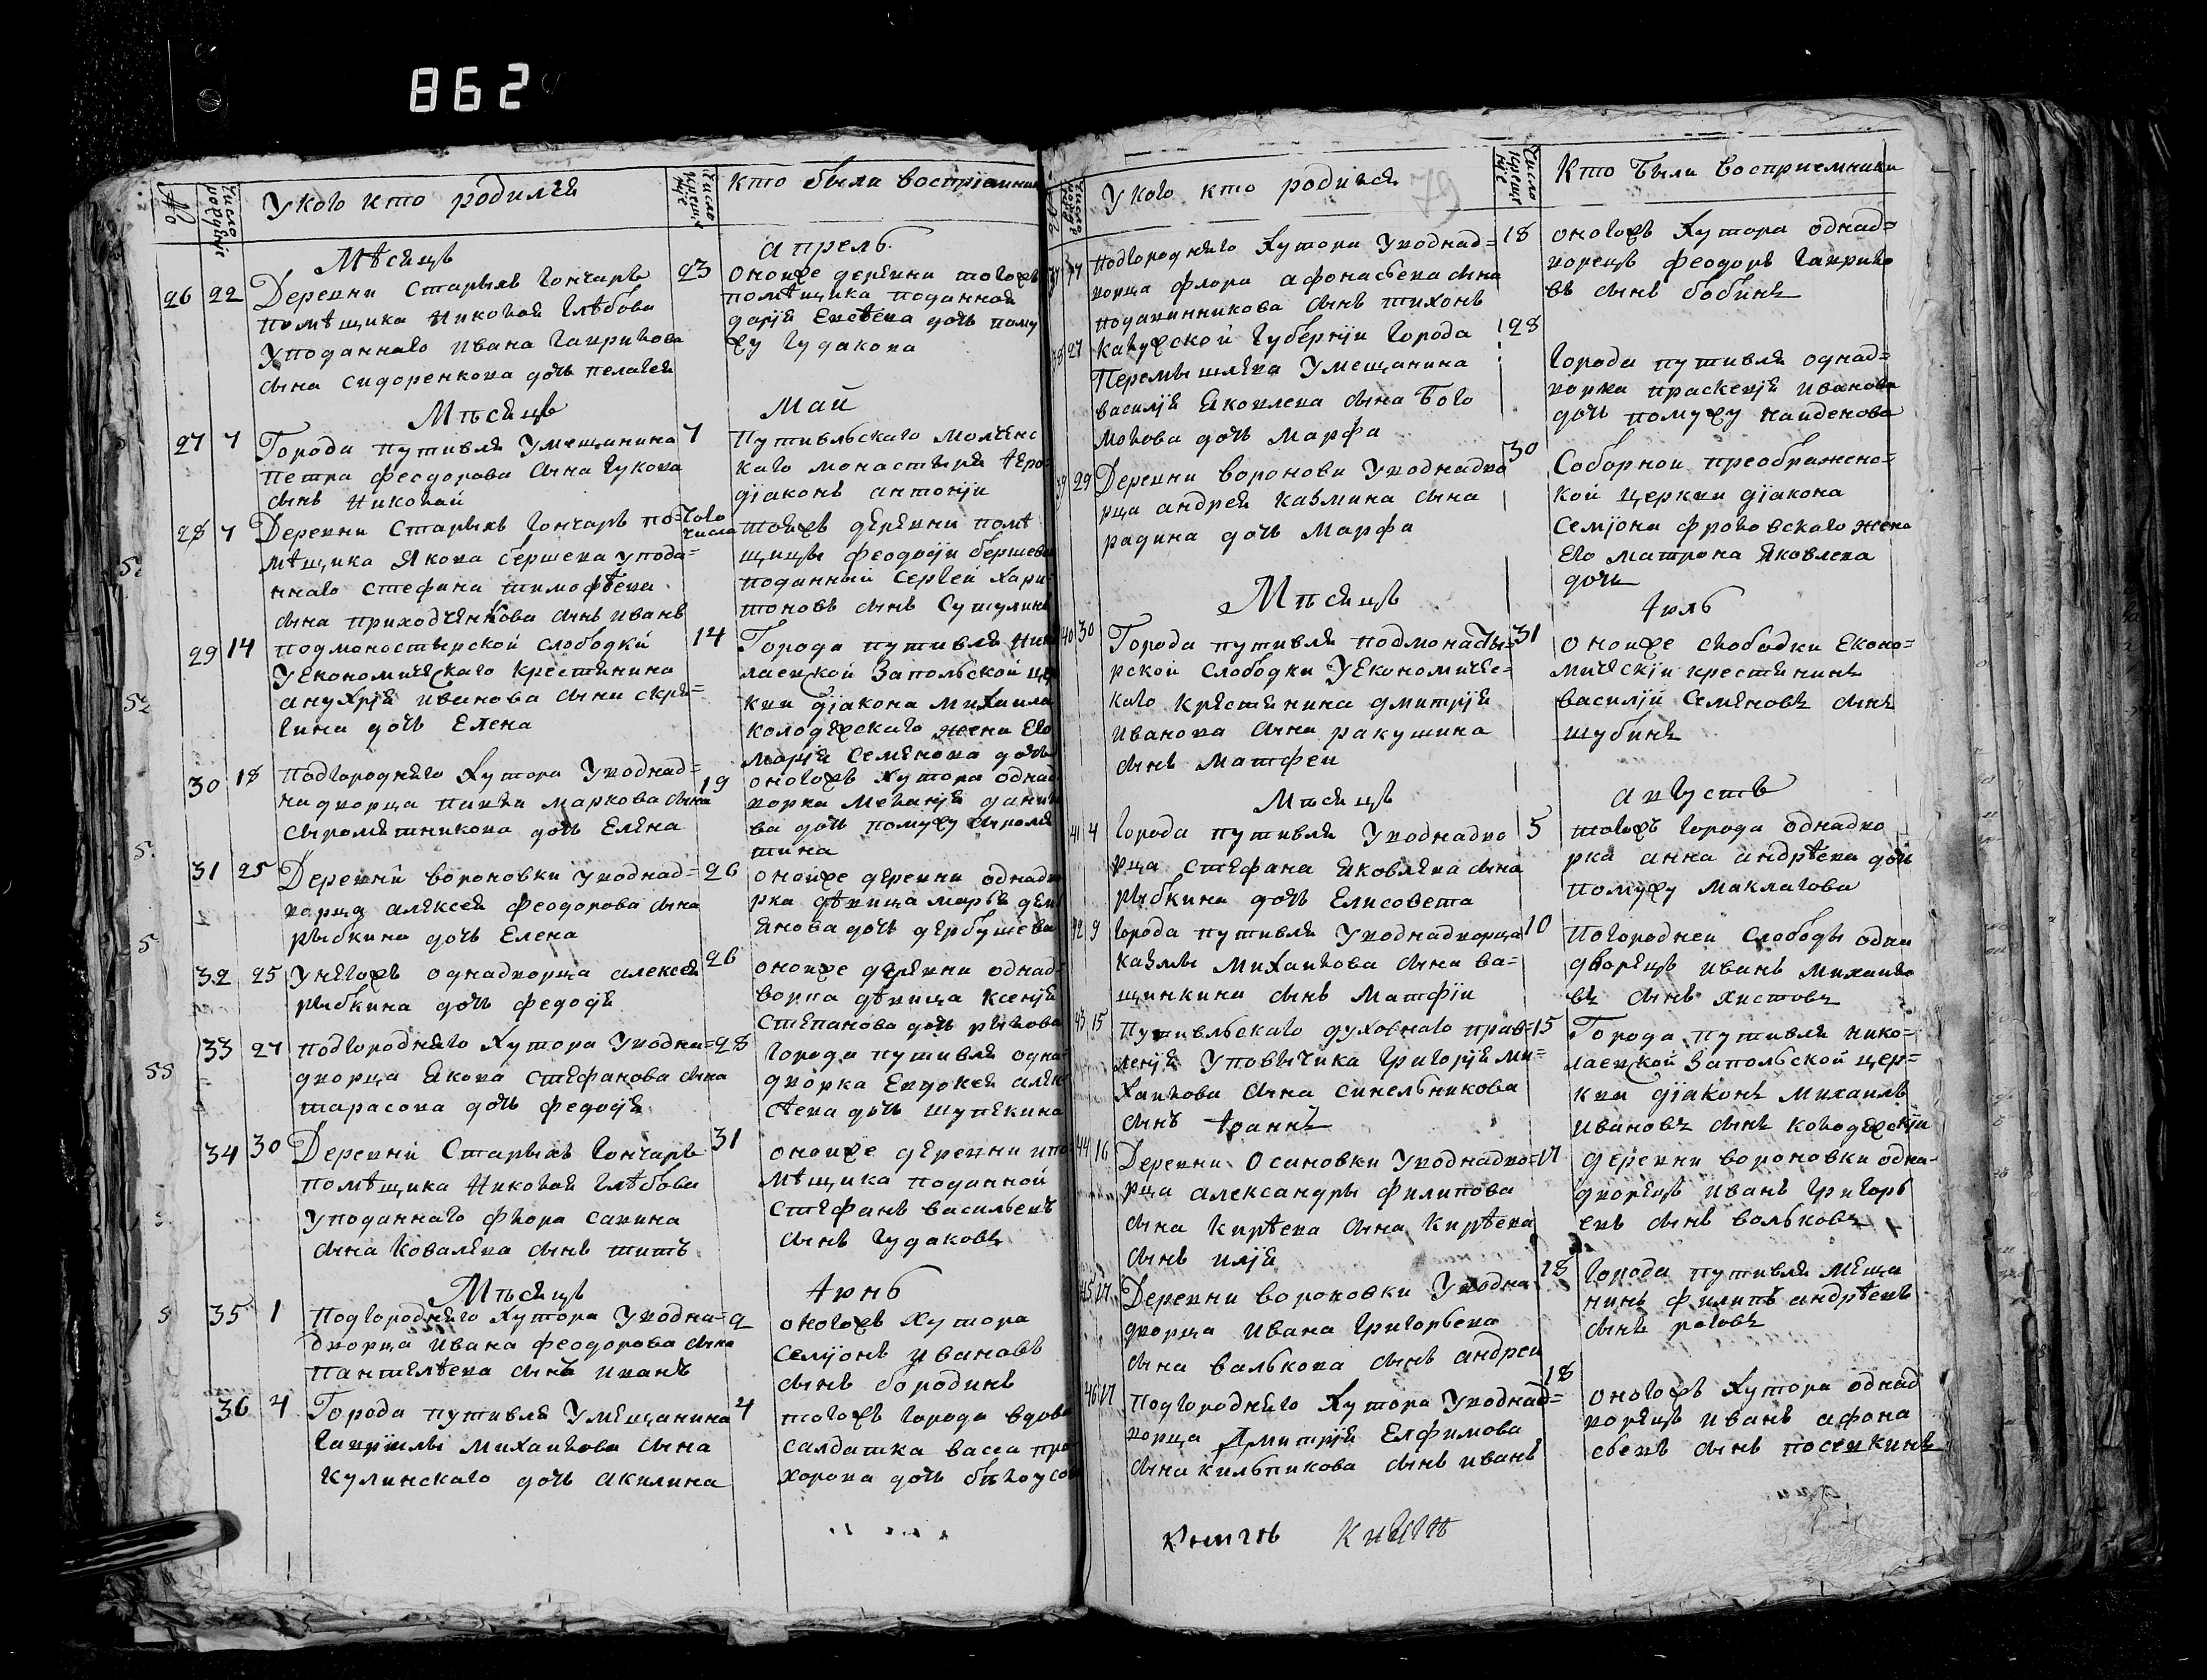 862
№
Число рождения
У кого кто родился
Число крещения
Кто были восприемники
Мѣсяцъ
Апрель
26 22 Деревни Старыхъ Гончаръ
помѣщика Николая Глѣбова
у поданнаго Ивана Гаврилова
сына Сидоренкова дочь Пелагея
23 оноиже деревни тогожъ
помѣщика поданная
дарія Евсѣева дочь по му
жу Гудакова
Мѣсяцъ
Май
27 7 Города Путивля у мещанина
Петра Феодорова сына Гукова
сынъ Николай
7 Путивльскаго Молченс
каго монастыря Іеро
діаконъ антоніи
28 7 Деревни Старыхъ Гончаръ по-
мѣщика Якова бершева у пода=
ннаго Стефана тимофѣева
сына приходченкова сынъ иванъ
того числа
тоижъ деревни помѣ
щицы феодосіи бершевой
поданный Сергей Хари
тоновъ сынъ Сутулинъ
29 14 подмоностырской слободки
у Економическаго крестянина
анухрія иванова сына скря=
гина дочь Елена
14 Города путивля Нико
лаевской Запольской цер
кви діакона Михаила
колодежскаго жена Его
марія Семенова дочь
30 18 Подгороднего Хутора у однад=
на дворца павла маркова сына
сыромятникова дочь Елена
19 оногожъ Хутора однад
ворка Меланія данило
ва дочь по мужу сыромя
тина
31 25 Деревни вороновки у однад=
ворца алексея феодорова сына
рыбкина дочь Елена
26 оноиже деревни однадво
рка дѣвица марья деми
янова дочь дербушева
32 25 У негожъ однадворца алексея
рыбкина дочь федосія
26 оноиже деревни однад=
ворка дѣвица Ксенія
Степанова дочь рыкова
33 27 Подгороднего Хутора у одна=
дворца Якова Стефанова сына
тарасова дочь федосія
28 города путивля одна
дворка Евдокея алек
сѣева дочь шупекина
34 30 Деревни Старыхъ Гончаръ
помѣщика Николая Глѣбова
у поданнаго флора савина
сына ковалева сынъ титъ
31 оноиже деревни и по
мѣщика поданной
Стефанъ васильевъ
сынъ Гудаковъ
Мѣсяцъ
Іюнь
35 1 Подгороднего Хутора у одна=
дворца ивана феодорова сына
Пантелѣева сынъ иванъ
2 оногожъ Хутора
Семіонъ ивановъ
сынъ бородинъ
36 4 Города путивля у мещанина
Гавріилы Михаилова сына
кулинскаго дочь акилина
4 тогожъ города вдова
салдатка васса про
хорова дочь бѣлоусова
У кого кто родился
79
Число крещения
Кто были восприемники
37 17 Подгороднего Хутора у однад=
ворца флора афонасьева сына
подавинникова сынъ тихонъ
18 оногожъ Хутора однад=
ворецъ феодоръ гаврило
въ сынъ бобинъ
38 27 Калужской губерніи города
Перемышлева у мещанина
василія яковлева сына Бого
молова дочь марфа
28
города путивля однад=
ворка праскевія иванова
дочь по мужу найденова
39 29 Деревни воронови у однадво
рца андрея казмина сына
радина дочь Марфа
30 Соборнои преображенс=
кой церкви діакона
Семіона фроловскаго жена
Его матрона яковлева
дочь
Мѣсяцъ
Іюль
40 30 Города путивля подмонасты=
рской слободки у Економичес=
каго крестянина дмитрія
иванова сына ракушина
сынъ матфеи
31 оноиже слободки Еконо=
мическіи крестянинъ
василій Семеновъ сынъ
шубинъ
Мѣсяцъ
августъ
41 4 города путивля у однадво
рца стефана яковлева сына
рыбкина дочь Елисовета
5 тогожъ города однадво
рка анна андрѣева дочь
по мужу маклагова
42 9 города путивля у однадворца
казмы Михаилова сына ва=
щинкина сынъ Матфіи
10 Погородней слободы одна
дворецъ иванъ михаило
въ сынъ хистовъ
43 15 Путивльскаго духовнаго прав=
ленія у повытчика григорія ми=
хаилова сына синельникова
сынъ Іоаннъ
15 Города путивля нико=
лаевской Запольской цер=
кви діаконъ михаилъ
ивановъ сынъ колодежскіи
44 16 Деревни Осановки у однадво=
рца александры филипова
сына кирѣева сына кирѣева
сынъ илія
17 деревни вороновки одна-
дворецъ иванъ григорь
евъ сынъ вольковъ
45 17 Деревни вороновки у одна
дворца ивана григорьева
сына валькова сынъ андреи
18 города путивля меща
нинъ филипъ андрѣевъ
сынъ роговъ
46 17 Подгороднего Хутора у однад=
ворца дмитрія Елфимова
сына кильпикова сынъ иванъ
18 оногожъ Хутора однад
ворецъ иванъ афона
сьевъ сынъ посевкинъ